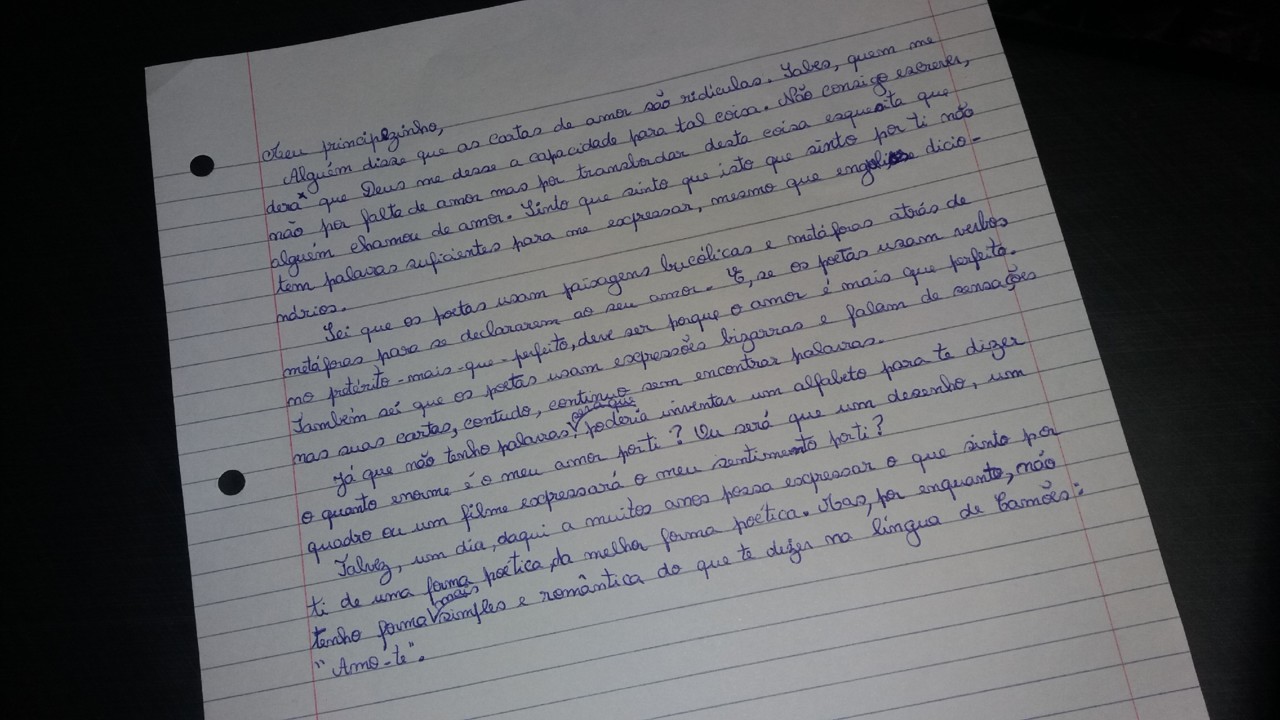 Meu principezinho,
Alguém disse que as cartas de amor são ridículas. Sabes, quem me
dera* que Deus me desse a capacidade para tal coisa. Não consigo escrever,
não por falta de amor mas por transbordar desta coisa esquesita que
alguém chamou de amor. Sinto que sinto que isto que sinto por ti não
tem palavas suficientes para me expressar, mesmo que engolisse dicio-
nários.
Sei que os poetas usam paisagens bucólicas e metáforas atrás de
metáforas para se declararem ao seu amor. E, se os poetas usam verbos
no pretérito-mais-que-perfeito, deve ser porque o amor é mais que perfeito.
Também sei que os poetas usam expressões bizarras e falam de sensações
nas suas cartas, contudo, continuo sem encontrar palavras.
Já que não tenho palavras, será que poderia inventar um alfabeto para te dizer
o quanto enorme é o meu amor por ti? Ou será que um desenho, um
quadro ou um filme expressará o meu sentimento por ti?
Talvez, um dia, daqui a muitos anos possa expressar o que sinto por
ti de uma forma poética, da melhor forma poética. Mas, por enquanto, não
tenho forma mais simples e romântica do que te dizer na língua de Camões:
"Amo-te".